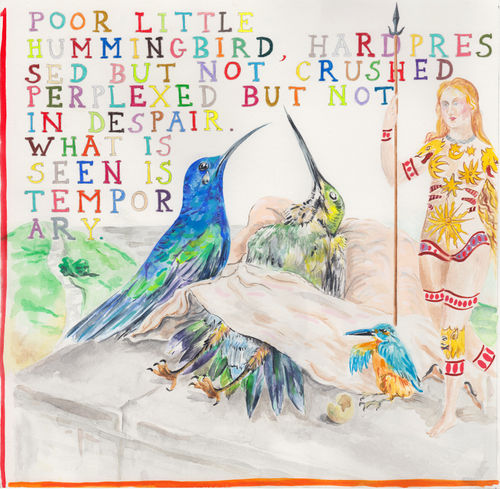 POOR LITTLE
HUMMINGBIRD, HARDPRES
SED BUT NOT CRUSHED
PERPLEXED BUT NOT
IN DESPAIR.
WHAT IS
SEEN IS
TEMPOR
ARY.